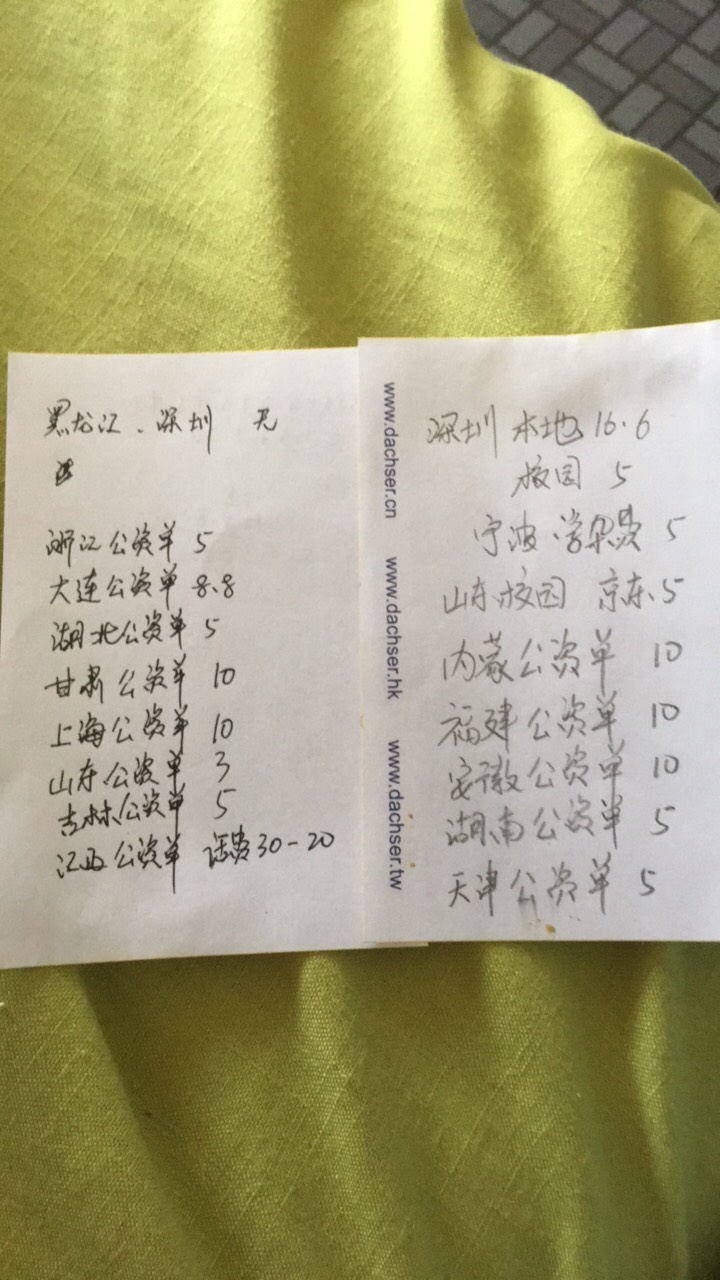 黑龙江、深圳 无
浙江公资单 5
大连公资单 8.8
湖北公资单 5
甘肃公资单 10
上海公资单 10
山东公资单 3
吉林公资单 5
江西公资单 话费30-20
www.dachser.cn www.dachser.hk www.dachser.tw
深圳 本地 16.6
校园 5
宁波·学杂费 5
山东校园 京东.5
内蒙公资单 10
福建公资单 10
安徽公资单 10
湖南公资单 5
天津公资单 5